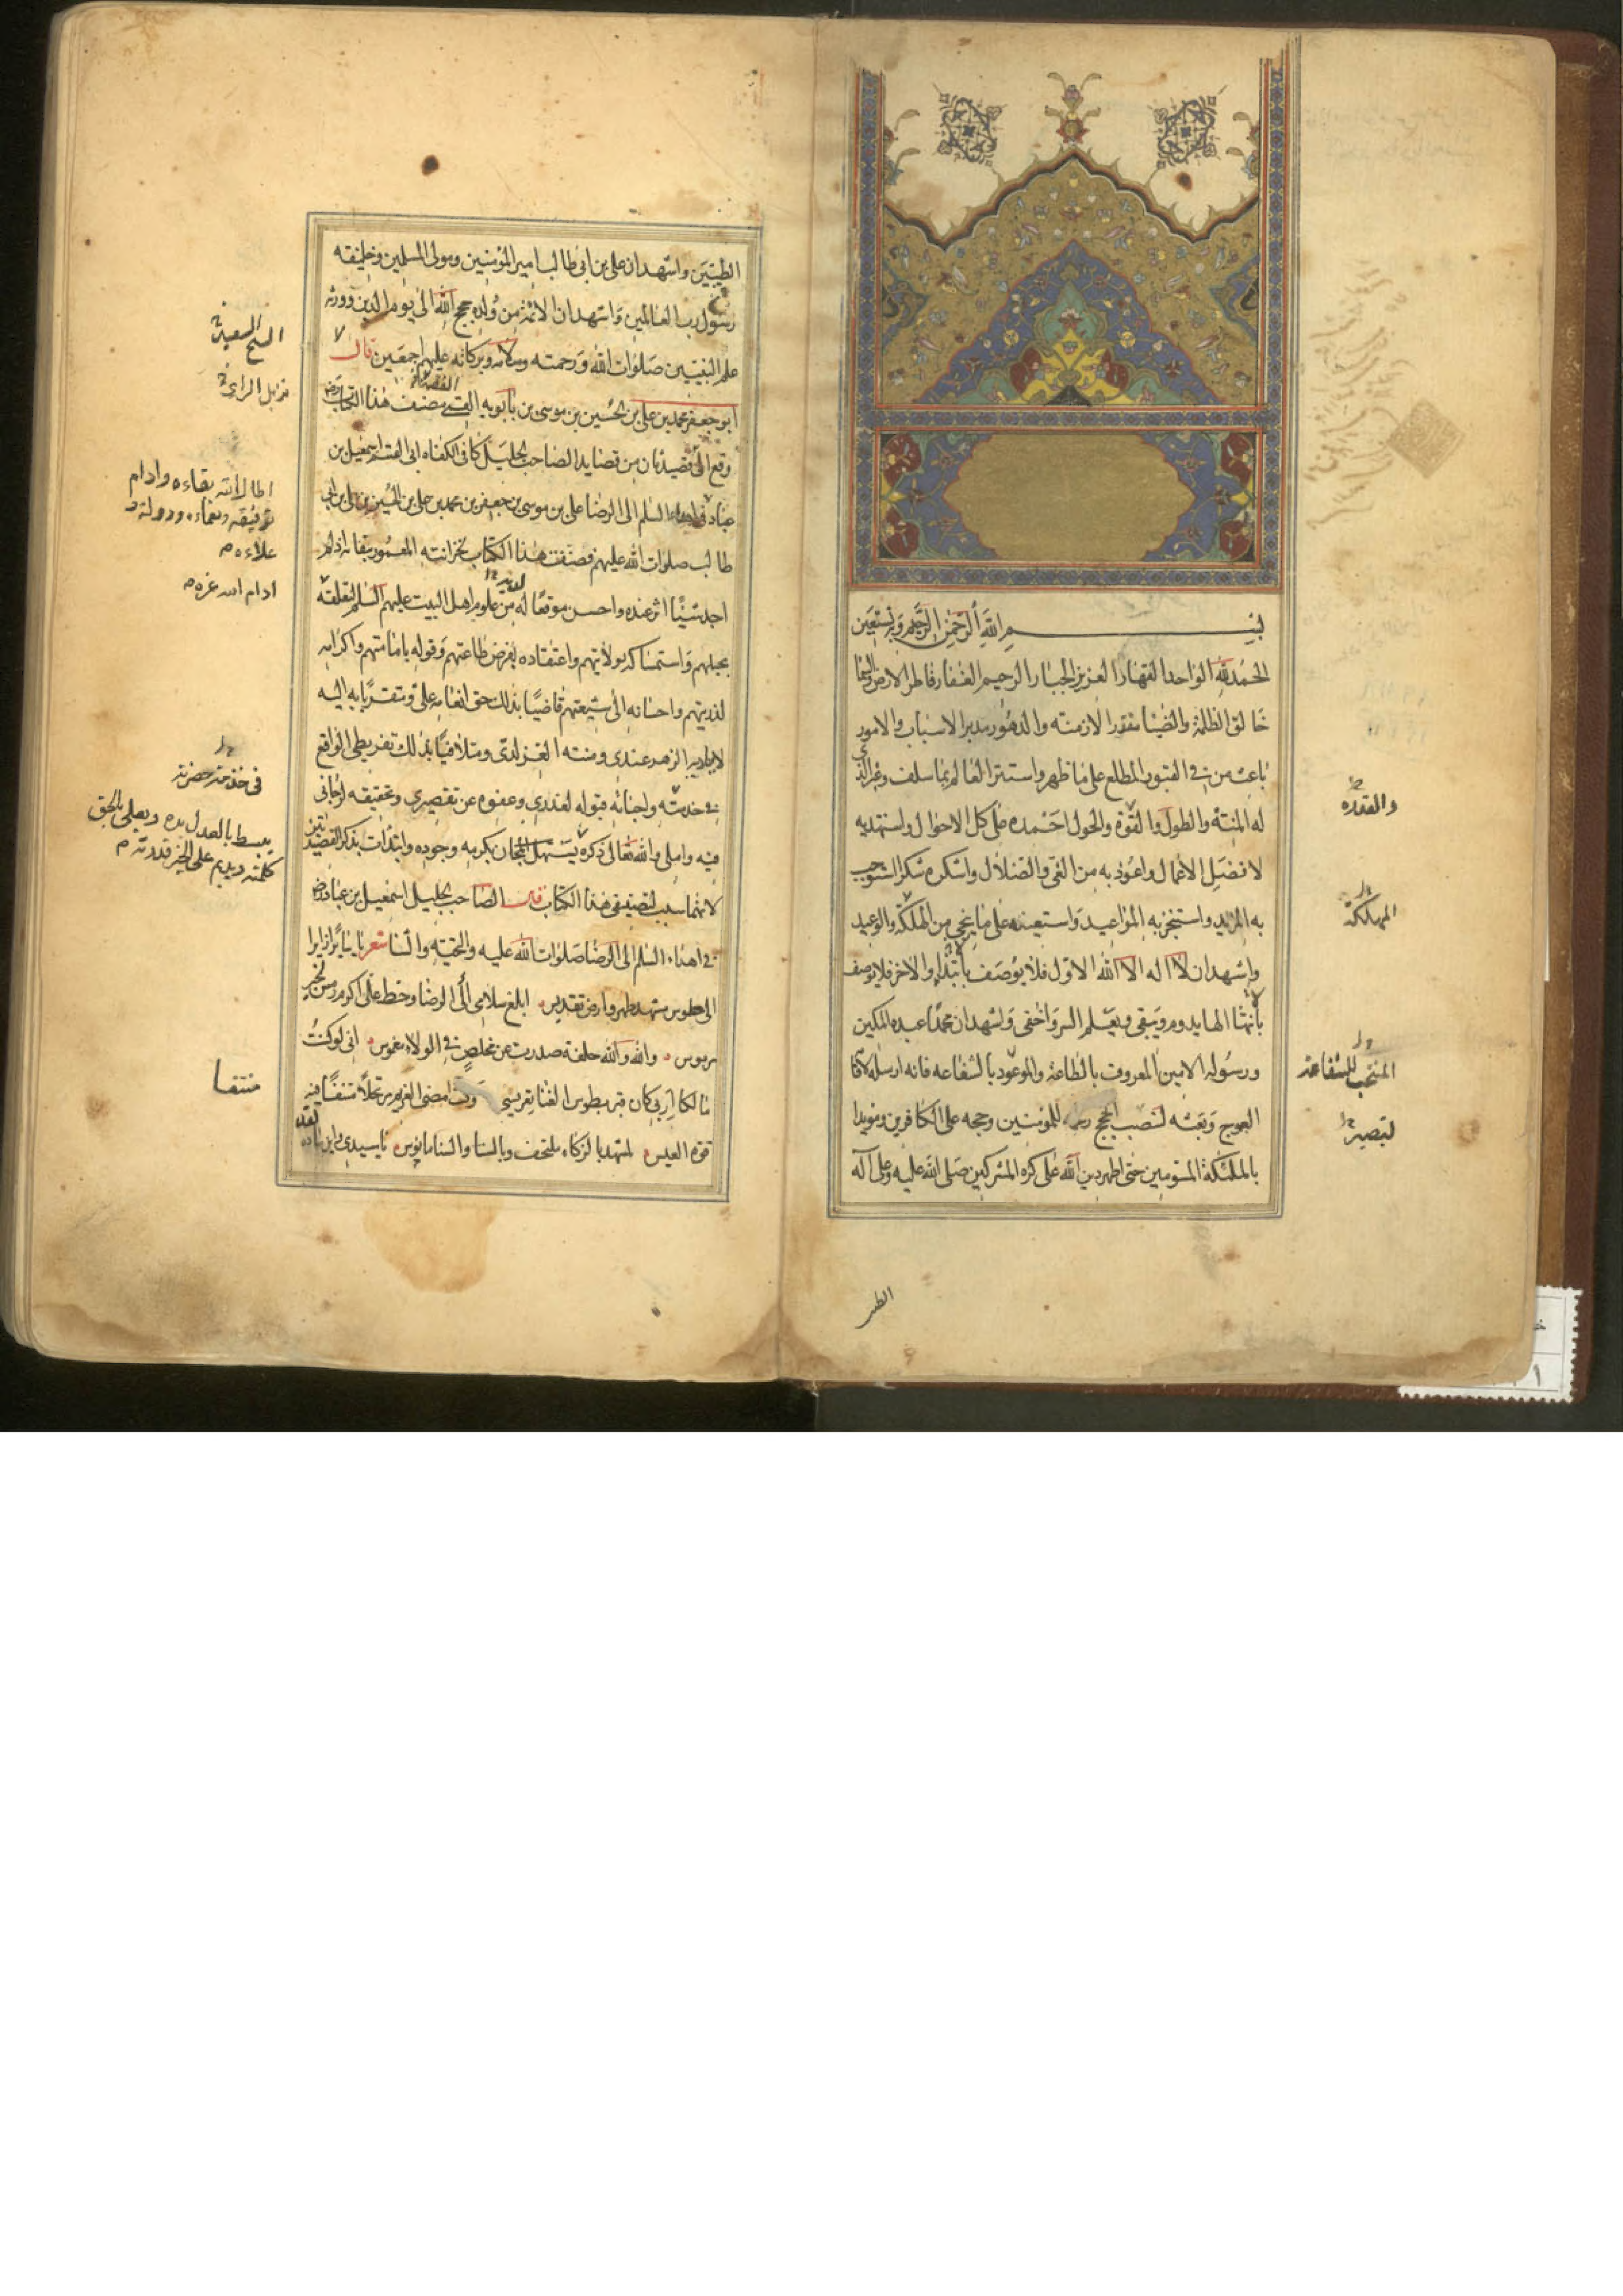 بسم الله الرحمن الرحيم وبه نستعين
الحمد لله الواحد القهار العزيز الجبار الرحيم الغفار فاطر الارض والسما
خالق الظلمة والضيا مقدر الازمنة والدهور مدبر الاسباب والامور
باعث من في القبور المطلع على ما ظهر واستتر العالم بما سلف وغبر الذي
له المنة والطول والقوة والحول احمده على كل الاحوال واستهديه
لافضل الاعمال واعوذ به من الغي والضلال واشكره شكرا استوجب
به المزيد واستنجز به المواعيد واستعينه على ما ينجي من الهلكة والوعيد
واشهد ان لا اله الا الله الاول فلا يوصف بابتداء والاخر فلا يوصف
بانتها الها يدوم ويبقى ويعلم السر واخفى واشهد ان محمدا عبده المكين
ورسوله الامين المعروف بالطاعة والموعود بالشفاعه فانه ارسله لاقامة
العوج وبعثه لنصب الحجج للمؤمنين وحجه على الكافرين ومويدا
بالملئكة المسومين حتى اظهر دين الله على كره المشركين صلى الله عليه وعلى آله
والقدره
المهلكة
المنتجب للشفاعة
الطيـ
الطيبين واشهد ان علي بن ابي طالب امير المؤمنين ومولى المسلمين وخليفه
رسول رب العالمين واشهد ان الائمة من ولده حجج الله الى يوم الدين وورثة
علم النبيين صلوات الله ورحمته وسلامه وبركاته عليهم اجمعين قال
ابو جعفر محمد بن علي بن الحسين بن موسى بن بابويه القمي مصنف هذا الكتاب
وقع الي قصيدتان من قصايد الصاحب الجليل كافي الكفاه ابي القسم اسمعيل بن
عباد في اهداء السلم الى الرضا علي بن موسى بن جعفر بن محمد بن علي بن الحسين بن علي بن ابي
طالب صلوات الله عليهم فصنفت هذا الكتاب لخزانته المعمورة ببقائه اذ لم
اجد شيئا اثر عنده واحسن موقعا لديه من علوم اهل البيت عليهم السلم لتعلقه
بحبلهم واستمساكه بولايتهم واعتقاده بفرض طاعتهم وقوله بامامتهم واكرامه
لذريتهم واحسانه الى شيعتهم قاضيا بذلك حق انعامه علي ومتقربا به اليه
لاياديه الزهر عندي ومننه الغر لدي ومتلافيا بذلك تفريطي الواقع
في خدمته واجيا به قبوله لعذري وعفوه عن تقصيري وتحقيقه لرجائي
فيه واملي والله تعالى ذكره بكرمه وجوده وابتدات بذكر القصيدتين
لانهما سبب لتصنيفي هذا الكتاب قال الصاحب الجليل اسمعيل بن عباد
في اهداء السلم الى الرضا صلوات الله عليه والتحية والثنا شعر يا سايرا زايرا
الى طوس مشهد طهر وارض تقديس ابلغ سلامي الى الرضا وحط على اكرم رمس لخير
مرموس والله والله حلفة صدرت عن مخلص في الولاء مغموس اني لو كنت
مالكا اربي كان بطوس الفنا تعريسي وكنت امضي العزيم مرتحلا منتسفا فيه
قوة العيس لمشهد بالزكاء ملتحف وبالسنا والثنا مانوس يا سيدي وابن سادتي
الشيخ السعيد
نزيل الري
اطال الله بقاءه وادام
توفيقه ونعماءه ودولته و
علاءه
ادام الله عزه
في خدمة حضرته
يبسط بالعدل يده ويعلي بالحق
كلمته ويديم على الخير قدرته
منتسفا
١